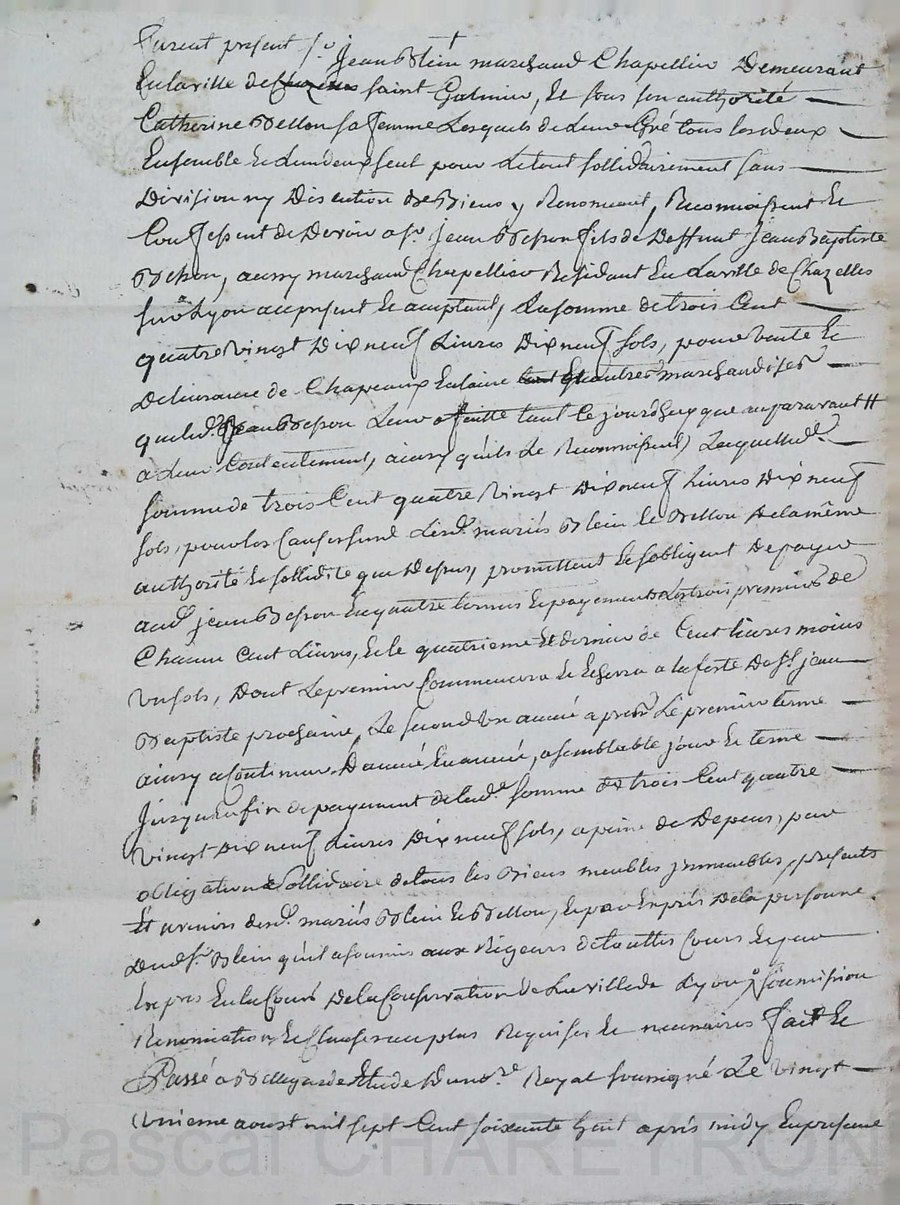 Furent present sr +
jean Blein marchand Chapellier Demeurant
En la ville de saint Galmier, Et sous son authorité
Catherine Bellon sa femme Lesquels de Leur Gré tous les deux
Ensemble Et L'un deux seul pour Le tout sollidairement sans
Division ny Discution De Biens y Renonceant, Reconnoissent Et
Confessent de Devoir a sr jean Besson fils de Deffunt jean Baptiste
Besson, aussy marchand Chapellier Residant En La ville de Chazelles
sur Lyon au present Et aceptant, La somme de trois Cent
quatre vingt Dix neuf Livres Dix neuf sols, pour vente Et
Delivrance de Chapeaux En laine Et autres marchandises
que led. jean Besson Leur a faitte tant Ce jourd'huy que auparavant
a Leur Contentement, ainsy qu'ils Le Reconnoissent, Laquelle de
somme de trois Cent quatre vingt Dix neuf Livres Dix neuf
sols, pour les Causes Lesd. mariés Blein Et Bellon De la même
authorité Et sollidité que Dessus, promettent Et s'obligent De payer
aud. jean Besson En quatre termes Et payements Les trois premiers de
Chacun Cent Livres, Et le quatrieme Et dernier de Cent livres moins
un sols, Dont Le premier Commencera Et Eschera a la feste De St jean
Baptiste prochaine, Le second un année apres Le premier terme
ainsy a Continuer D'année En année, a semblable jour Et terme
jusqu'En fin de payement de lad. somme de trois Cent quatre
vingt Dix neuf Livres Dix neuf sols, a peine de Depens, par
obligation sollidaire de tous les Biens meubles jmmeubles, presents
Et avenirs desd. mariés Blein Et Bellon, Et par Exprés De la personne
Dud. sr Blein qu'il a soumis aux Rigeurs de touttes Cours Et par
Exprés En la Cour De la Conservation de La ville de Lyon soumission
Renonciation Et Clauses au plus Requises Et necessaires fait Et
Passé a Bellegarde Etude Du nore Royal soussigné Le vingt
Unieme aoust mil sept Cent soixante huit aprés midy En presence
Pascal CHAREYRON